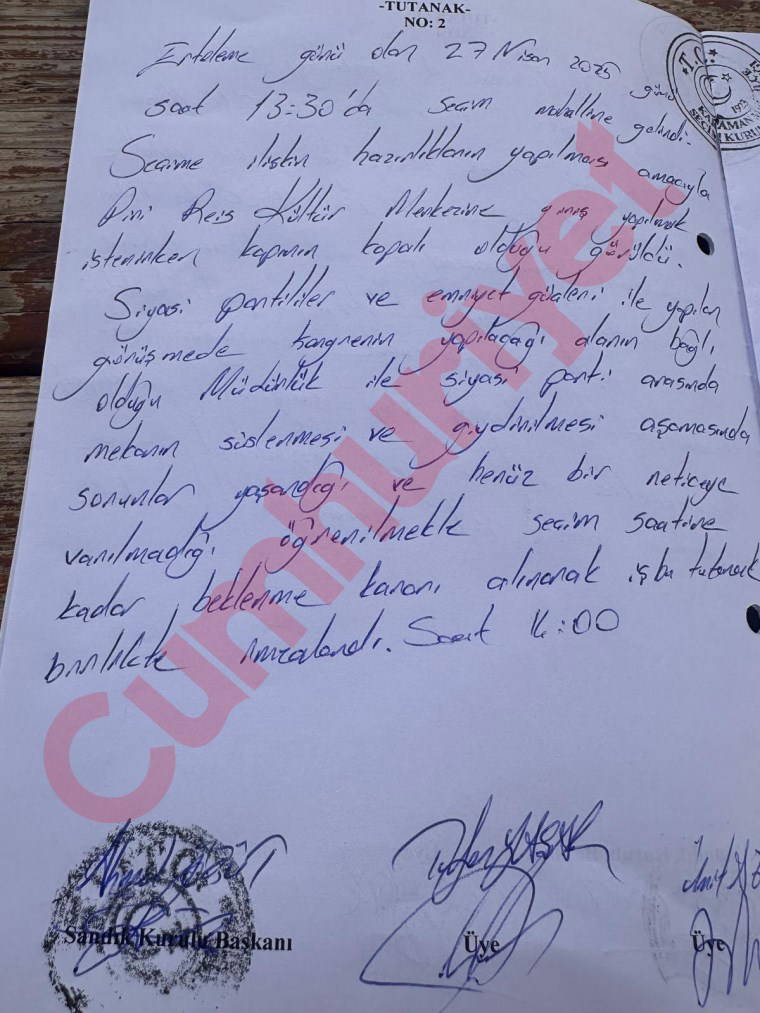 -TUTANAK-
NO: 2
Erteleme günü olan 27 Nisan 2025 günü
saat 13:30'da seçim mahalline gelindi.
Seçime ilişkin hazırlıkların yapılması amacıyla
Piri Reis Kültür Merkezine giriş yapılmak
istenirken kapının kapalı olduğu görüldü.
Siyasi partililer ve emniyet güçleri ile yapılan
görüşmede kongrenin yapılacağı alanın bağlı
olduğu Müdürlük ile siyasi parti arasında
mekanın süslenmesi ve giydirilmesi aşamasında
sorunlar yaşandığı ve henüz bir neticeye
varılmadığı öğrenilmekle seçim saatine
kadar beklenme kararı alınarak işbu tutanak
birlikte imzalandı. Saat 14:00
Cumhuriyet
T.C.
KARAMAN
SEÇİM KURULU
Ahmet
Sandık Kurulu Başkanı
Üye
Ümit
Üye